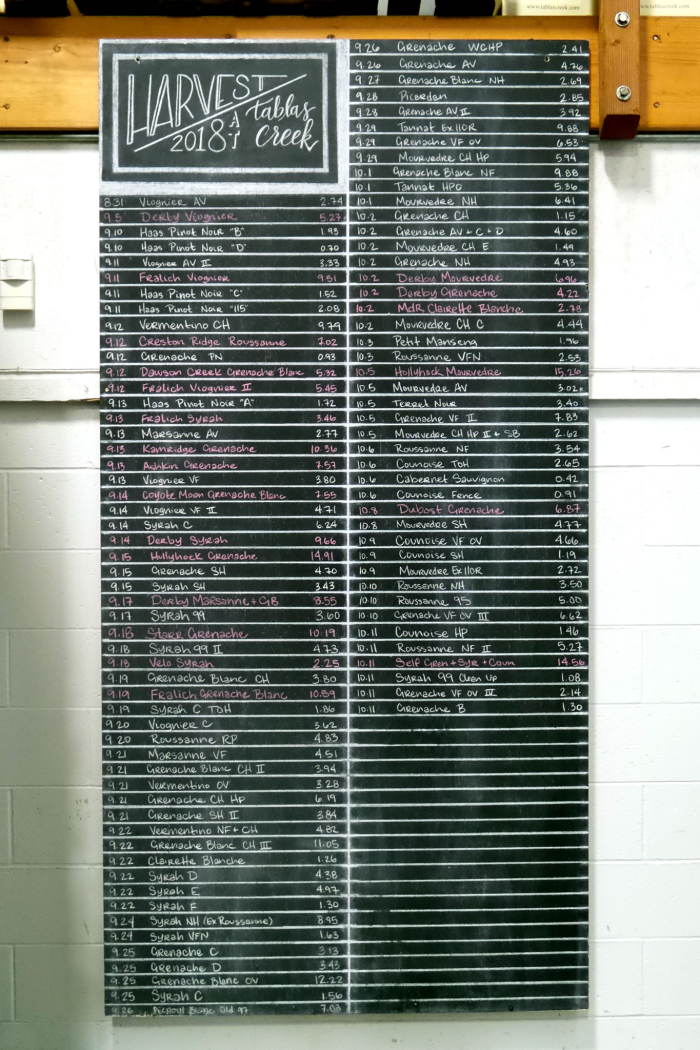 www.tablascreek.com
HARVEST
2018 AT tablas creek
8.31 Viognier AV 2.74
9.5 Derby Viognier 5.27
9.10 Haas Pinot Noir "B" 1.93
9.10 Haas Pinot Noir "D" 0.70
9.11 Viognier AV II 3.33
9.11 Fralich Viognier 9.51
9.11 Haas Pinot Noir "C" 1.52
9.11 Haas Pinot Noir "115" 2.08
9.12 Vermentino CH 9.79
9.12 Creston Ridge Roussanne 7.02
9.12 Grenache PN 0.93
9.12 Dawson Creek Grenache Blanc 5.32
9.12 Fralich Viognier II 5.45
9.13 Haas Pinot Noir "A" 1.72
9.13 Fralich Syrah 3.46
9.13 Marsanne AV 2.77
9.13 Kamridge Grenache 10.36
9.13 Ashkin Grenache 7.57
9.13 Viognier VF 3.80
9.14 Coyote Moon Grenache Blanc 7.55
9.14 Viognier VF II 4.71
9.14 Syrah C 6.24
9.14 Derby Syrah 9.66
9.15 Hollyhock Grenache 14.91
9.15 Grenache SH 4.70
9.15 Syrah SH 3.43
9.17 Derby Marsanne + GB 8.55
9.17 Syrah 99 3.60
9.18 Starr Grenache 10.19
9.18 Syrah 99 II 4.73
9.18 Velo Syrah 2.25
9.19 Grenache Blanc CH 3.80
9.19 Fralich Grenache Blanc 10.59
9.19 Syrah C TOH 1.86
9.20 Viognier C 3.62
9.20 Roussanne RP 4.83
9.21 Marsanne VF 4.51
9.21 Grenache Blanc CH II 3.94
9.21 Vermentino OV 3.28
9.21 Grenache CH HP 6.19
9.21 Grenache SH II 3.84
9.22 Vermentino NF + CH 4.82
9.22 Grenache Blanc CH III 11.05
9.22 Clairette Blanche 1.26
9.22 Syrah D 4.38
9.22 Syrah E 4.97
9.22 Syrah F 1.30
9.24 Syrah NH (Ex Roussanne) 8.95
9.24 Syrah VFN 1.63
9.25 Grenache C 3.13
9.25 Grenache D 3.43
9.25 Grenache Blanc OV 12.22
9.25 Syrah C 1.56
9.26 Picpoul Blanc Old 97 7.03
9.26 Grenache WCHP 2.41
9.26 Grenache AV 4.76
9.27 Grenache Blanc NH 2.69
9.28 Picardan 2.85
9.28 Grenache AV II 3.92
9.29 Tannat Ex110R 9.88
9.29 Grenache VF OV 6.53
9.29 Mourvedre CH HP 5.94
10.1 Grenache Blanc NF 9.88
10.1 Tannat HPO 5.36
10.1 Mourvedre NH 6.41
10.2 Grenache CH 1.15
10.2 Grenache AV + C + D 4.60
10.2 Mourvedre CH E 1.49
10.2 Grenache NH 4.93
10.2 Derby Mourvedre 6.96
10.2 Derby Grenache 4.22
10.2 MdR Clairette Blanche 2.73
10.2 Mourvedre CH C 4.44
10.3 Petit Manseng 1.96
10.3 Roussanne VFN 2.53
10.5 Hollyhock Mourvedre 15.26
10.5 Mourvedre AV 3.02
10.5 Terret Noir 3.40
10.5 Grenache VF II 7.83
10.5 Mourvedre CH HP II + SB 2.62
10.6 Roussanne NF 3.54
10.6 Counoise TOH 2.65
10.6 Cabernet Sauvignon 0.42
10.6 Counoise Fence 0.91
10.8 Dubost Grenache 6.87
10.8 Mourvedre SH 4.77
10.9 Counoise VF OV 4.66
10.9 Counoise SH 1.19
10.9 Mourvedre Ex110R 2.72
10.10 Roussanne NH 3.50
10.10 Roussanne 95 5.00
10.10 Grenache VF OV III 6.62
10.11 Counoise HP 1.46
10.11 Roussanne NF II 5.27
10.11 Self Gren + Syr + Coun 14.56
10.11 Syrah 99 Clean Up 1.08
10.11 Grenache VF OV IV 2.14
10.11 Grenache B 1.30